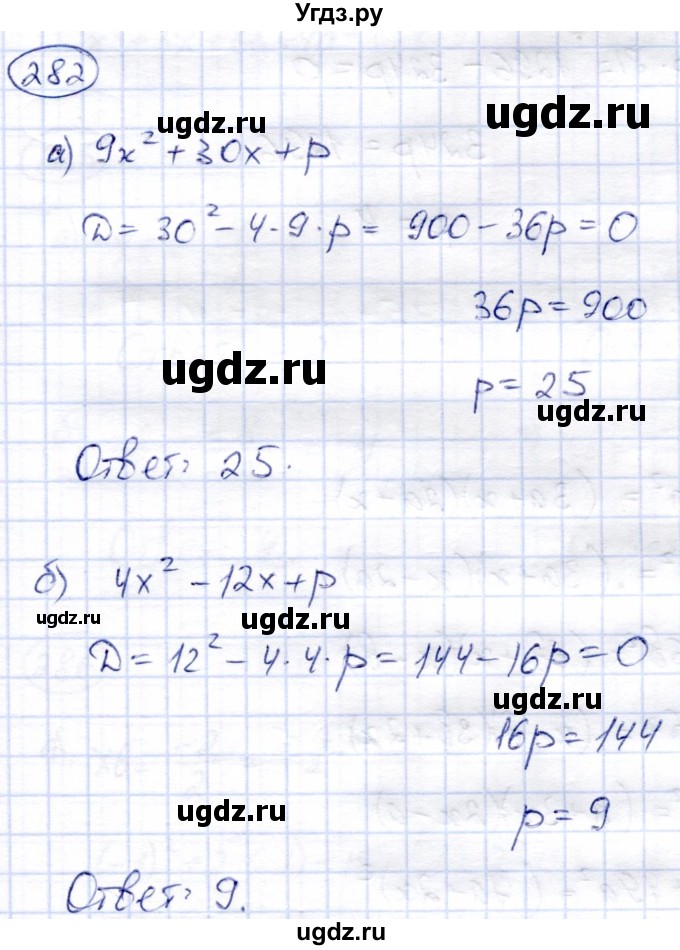 Угдз.ру
282
ugdz.ru
ugdz.ru
а) 9x² + 30x + p
D = 30² - 4 · 9 · p = 900 - 36p = 0
36p = 900
ugdz.ru
p = 25
ugdz.ru
Ответ: 25.
б) 4x² - 12x + p
ugdz.ru
ugdz.ru
D = 12² - 4 · 4 · p = 144 - 16p = 0
ugdz.ru
16p = 144
ugdz.ru
p = 9
Ответ: 9.
ugdz.ru
ugdz.ru